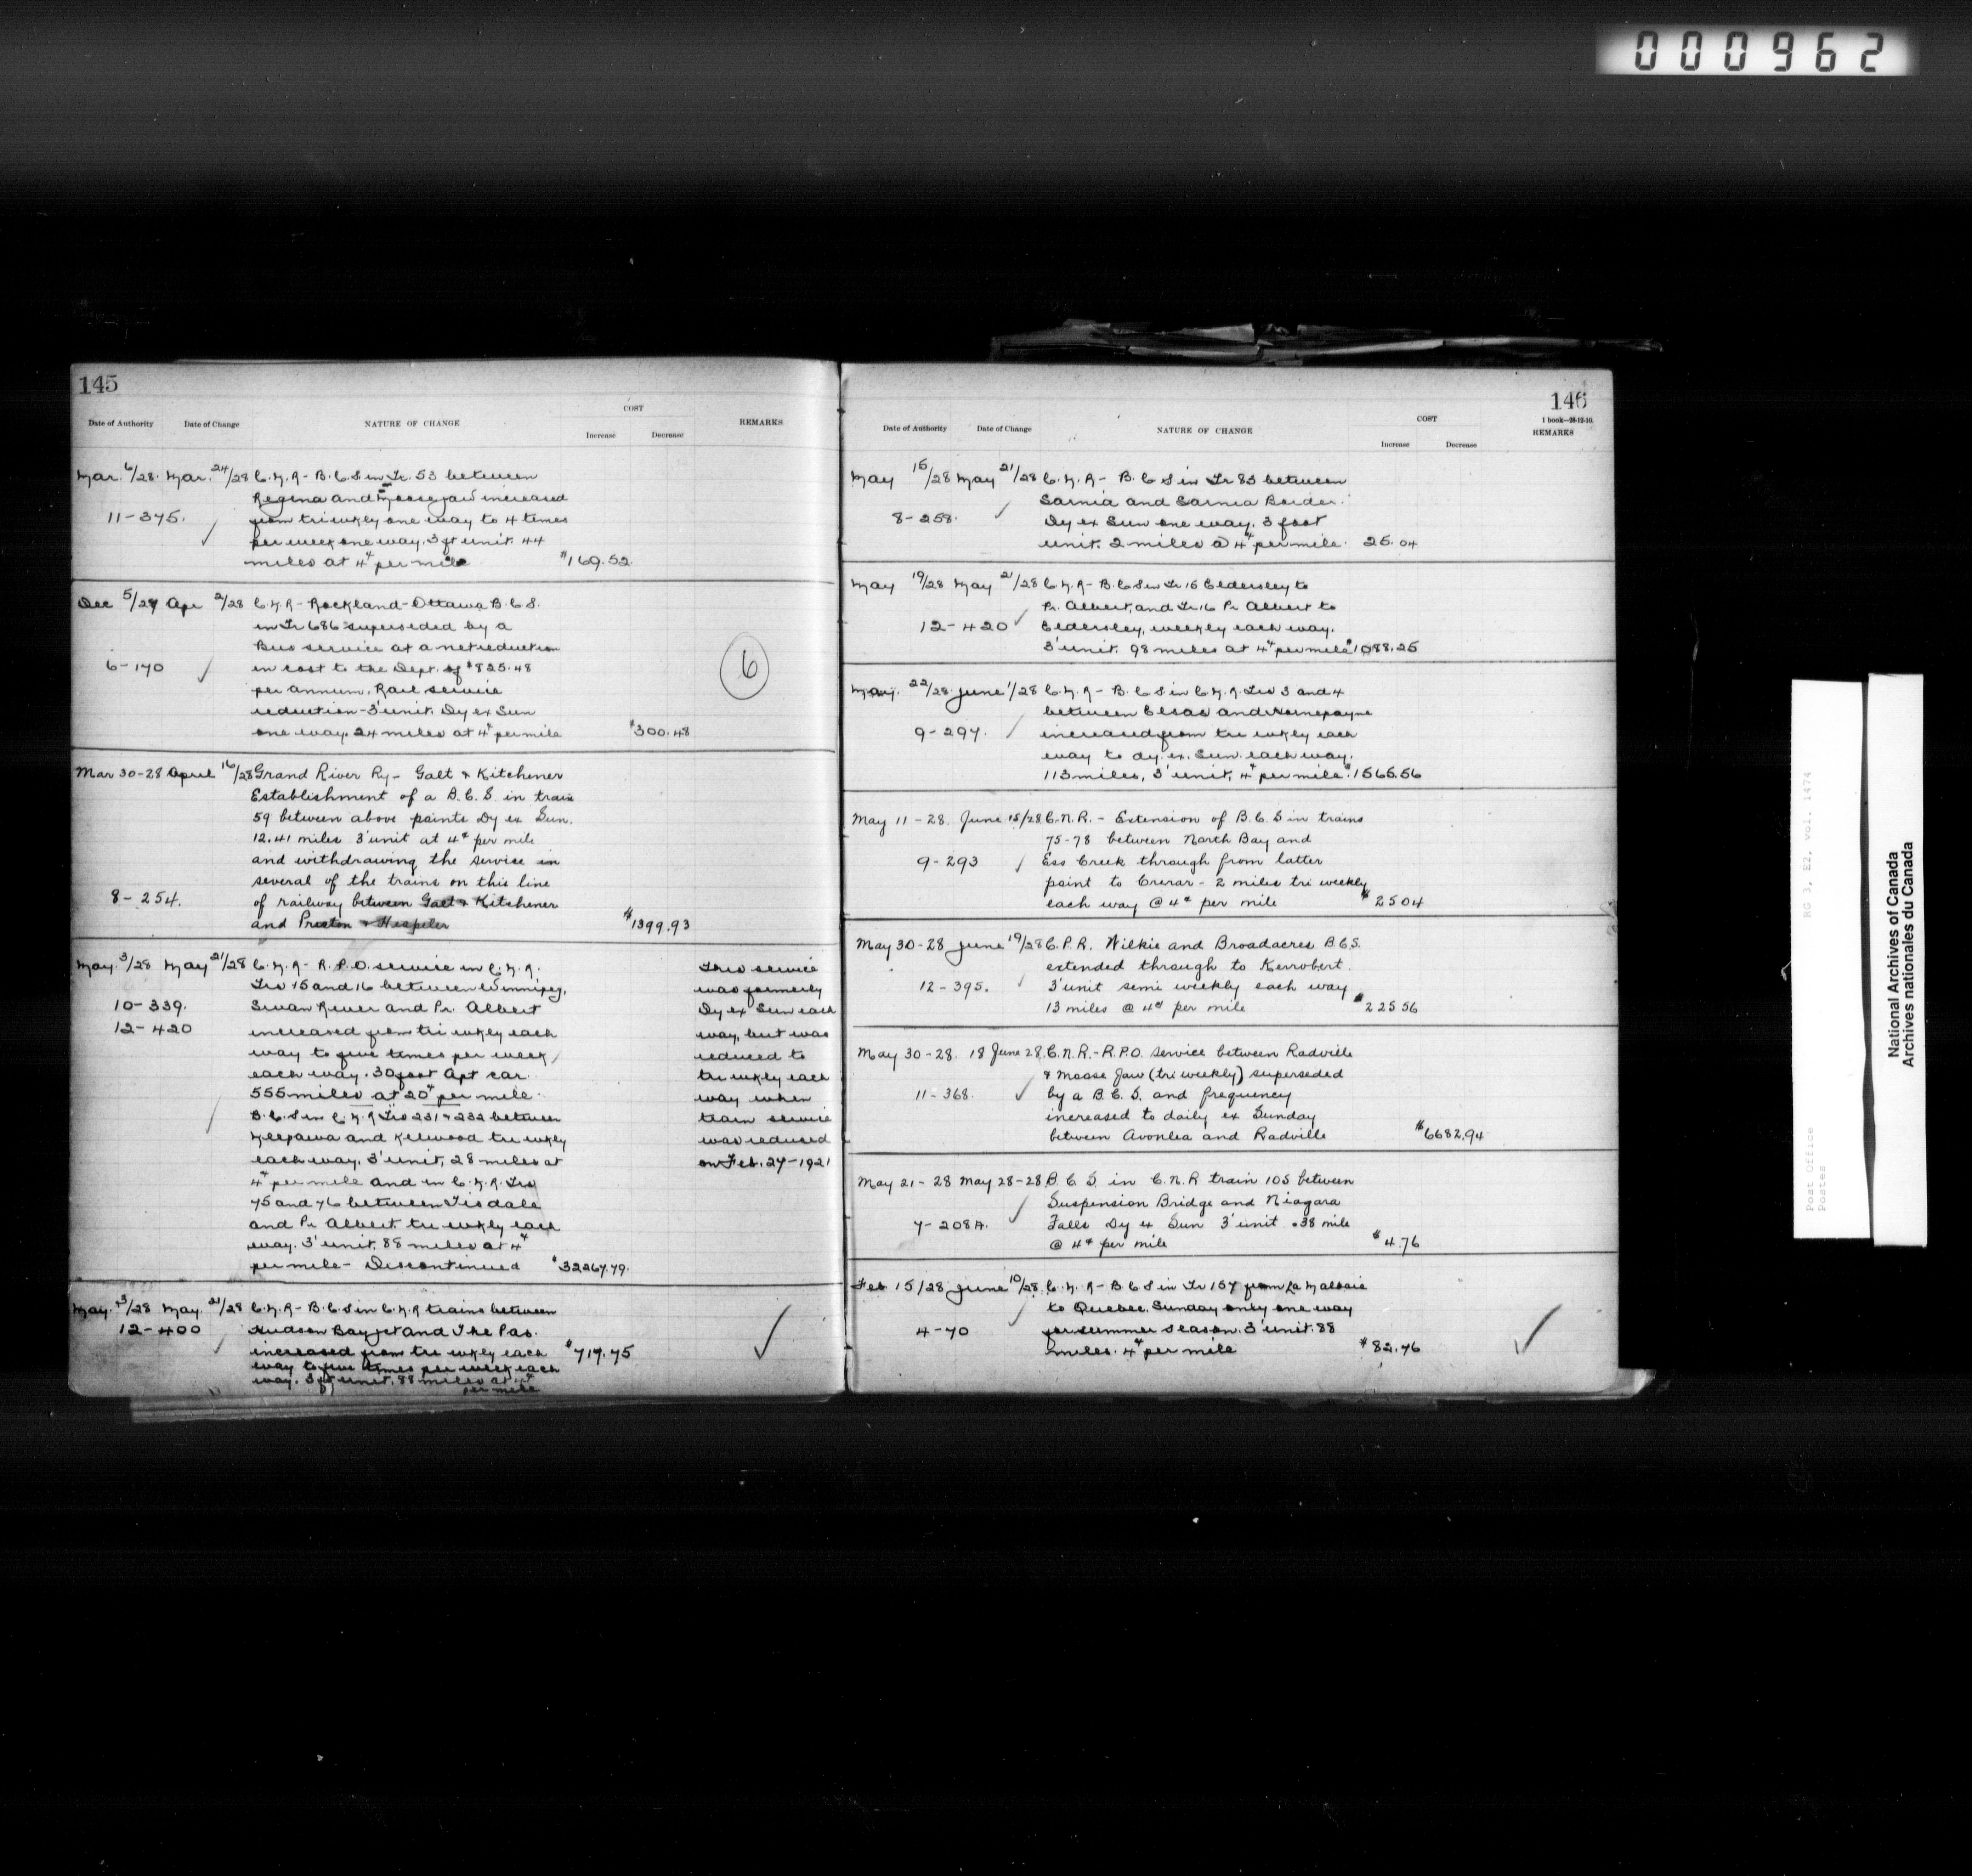 000962
145
COST
Date of Authority Date of Change NATURE OF CHANGE REMARKS
Increase Decrease
Mar. 6/28. Mar. 24/28 C.N.R - B.C.S in Tr. 53 between
Regina and Moosejaw increased
11-375. from tri wkly one way to 4 times
per week one way. 3 ft unit. 44
miles at 4¢ per mile $169.52
Dec 5/27 Apr 2/28 C.N.R - Rockland-Ottawa B.C.S.
in Tr 686 superseded by a
Bus service at a net reduction
6-170 in cost to the Dept. of $825.48
per annum. Rail service
reduction-3' unit. Dy ex Sun
one way. 24 miles at 4¢ per mile $300.48
6
Mar 30-28 April 16/28 Grand River Ry- Galt & Kitchener
Establishment of a B.C.S. in train
59 between above points Dy ex Sun.
12.41 miles 3' unit at 4¢ per mile
and withdrawing the service in
several of the trains on this line
8-254. of railway between Galt & Kitchener
and Preston & Hespeler $1399.93
May. 3/28 May 21/28 C.N.R - R.P.O. service in C.N.R. This service
Trs 15 and 16 between Winnipeg, was formerly
10-339. Swan River and Pr. Albert Dy ex Sun each
12-420 increased from tri wkly each way, but was
way to five times per week reduced to
each way. 30 foot Apt car. tri wkly each
555 miles at 20¢ per mile. way when
B.C.S in C.N.R Trs 231 & 232 between train service
Neepawa and Kelwood tri wkly was reduced
each way. 3' unit, 28 miles at on Feb. 27-1921
4¢ per mile and in C.N.R. Trs
75 and 76 between Tisdale
and Pr Albert tri wkly each
way. 3' unit. 88 miles at 4¢
per mile - Discontinued $32267.79.
May. 3/28 May. 21/28 C.N.R - B.C.S in C.N.R trains between
12-400 Hudson Bay Jct and The Pas.
increased from tri wkly each $717.75
way to five times per week each
way. 3 ft unit. 88 miles at 4¢
per mile
146
1 book-28-12-10.
COST
Date of Authority Date of Change NATURE OF CHANGE REMARKS
Increase Decrease
May 15/28 May 21/28 C.N.R - B.C.S in Tr 83 between
Sarnia and Sarnia Border.
8-258. Dy ex Sun one way. 3 foot
unit. 2 miles @ 4¢ per mile. 25.04
May 19/28 May 21/28 C.N.R - B.C.S in Tr 15 Eldersley to
Pr. Albert, and Tr 16 Pr Albert to
12-420 Eldersley, weekly each way.
3' unit. 98 miles at 4¢ per mile $1088.25
May. 22/28 June 1/28 C.N.R - B.C.S in C.N.R. Trs 3 and 4
between Elsas and Hornepayne
9-297. increased from tri wkly each
way to dy. ex. Sun. each way.
113 miles, 3' unit. 4¢ per mile $1565.56
May 11-28. June 15/28 C.N.R. - Extension of B.C.S in trains
75-78 between North Bay and
9-293 Ess Creek through from latter
point to Crerar - 2 miles tri weekly
each way @ 4¢ per mile $2504
May 30-28 June 19/28 C.P.R. Wilkie and Broadacres B.C.S.
extended through to Kerrobert.
12-395. 3' unit semi weekly each way
13 miles @ 4¢ per mile $2256
May 30-28. 18 June 28. C.N.R.-R.P.O. service between Radville
& Moose Jaw (tri weekly) superseded
11-368. by a B.C.S. and frequency
increased to daily ex Sunday
between Avonlea and Radville $6682.94
May 21-28 May 28-28 B.C.S. in C.N.R train 105 between
Suspension Bridge and Niagara
7-208A. Falls Dy ex Sun 3' unit .38 mile
@ 4¢ per mile $4.76
Feb 15/28 June 10/28 C.N.R - B.C.S in Tr 157 from La Malbaie
to Quebec. Sunday only one way
4-70 for summer season. 3' unit. 88
miles. 4¢ per mile $82.76
RG 3, E2, vol. 1474
Post Office
Postes
National Archives of Canada
Archives nationales du Canada